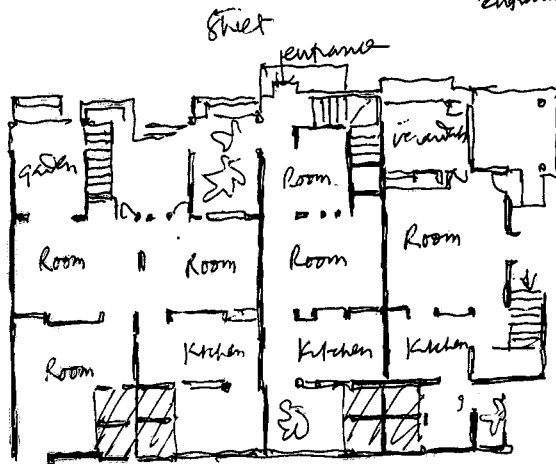 Street
entrance
garden
verandah
Room
Room
Room
Room
Room
Room
Kitchen
Kitchen
Kitchen